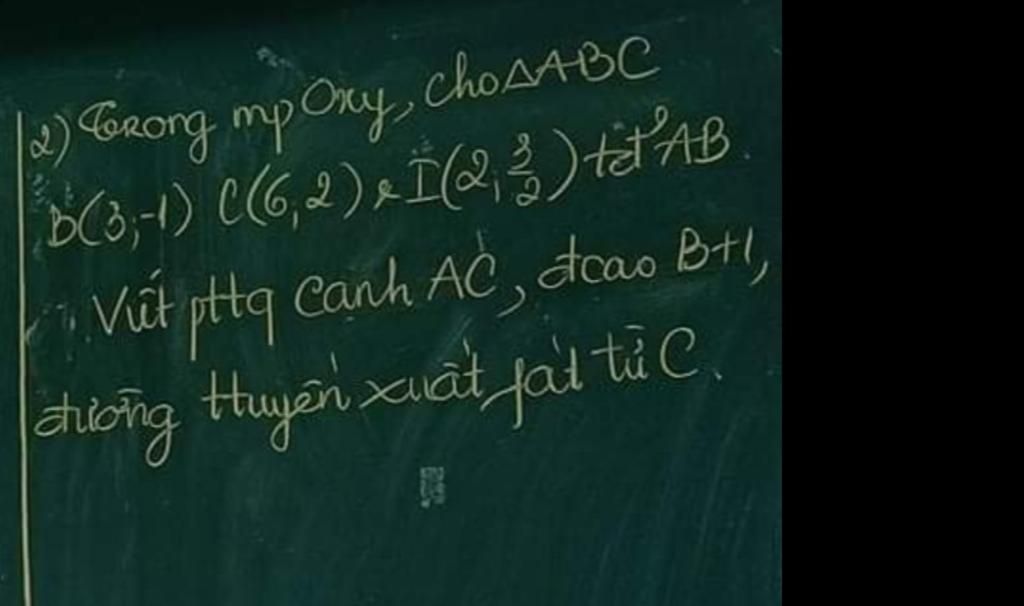 2) Trong mp Oxy, cho △ABC
B(3;-1) C(6,2) & I(2, 3/2) tđ AB.
Viết pttq cạnh AC, đcao BH,
đường ttuyến xuất fát từ C.